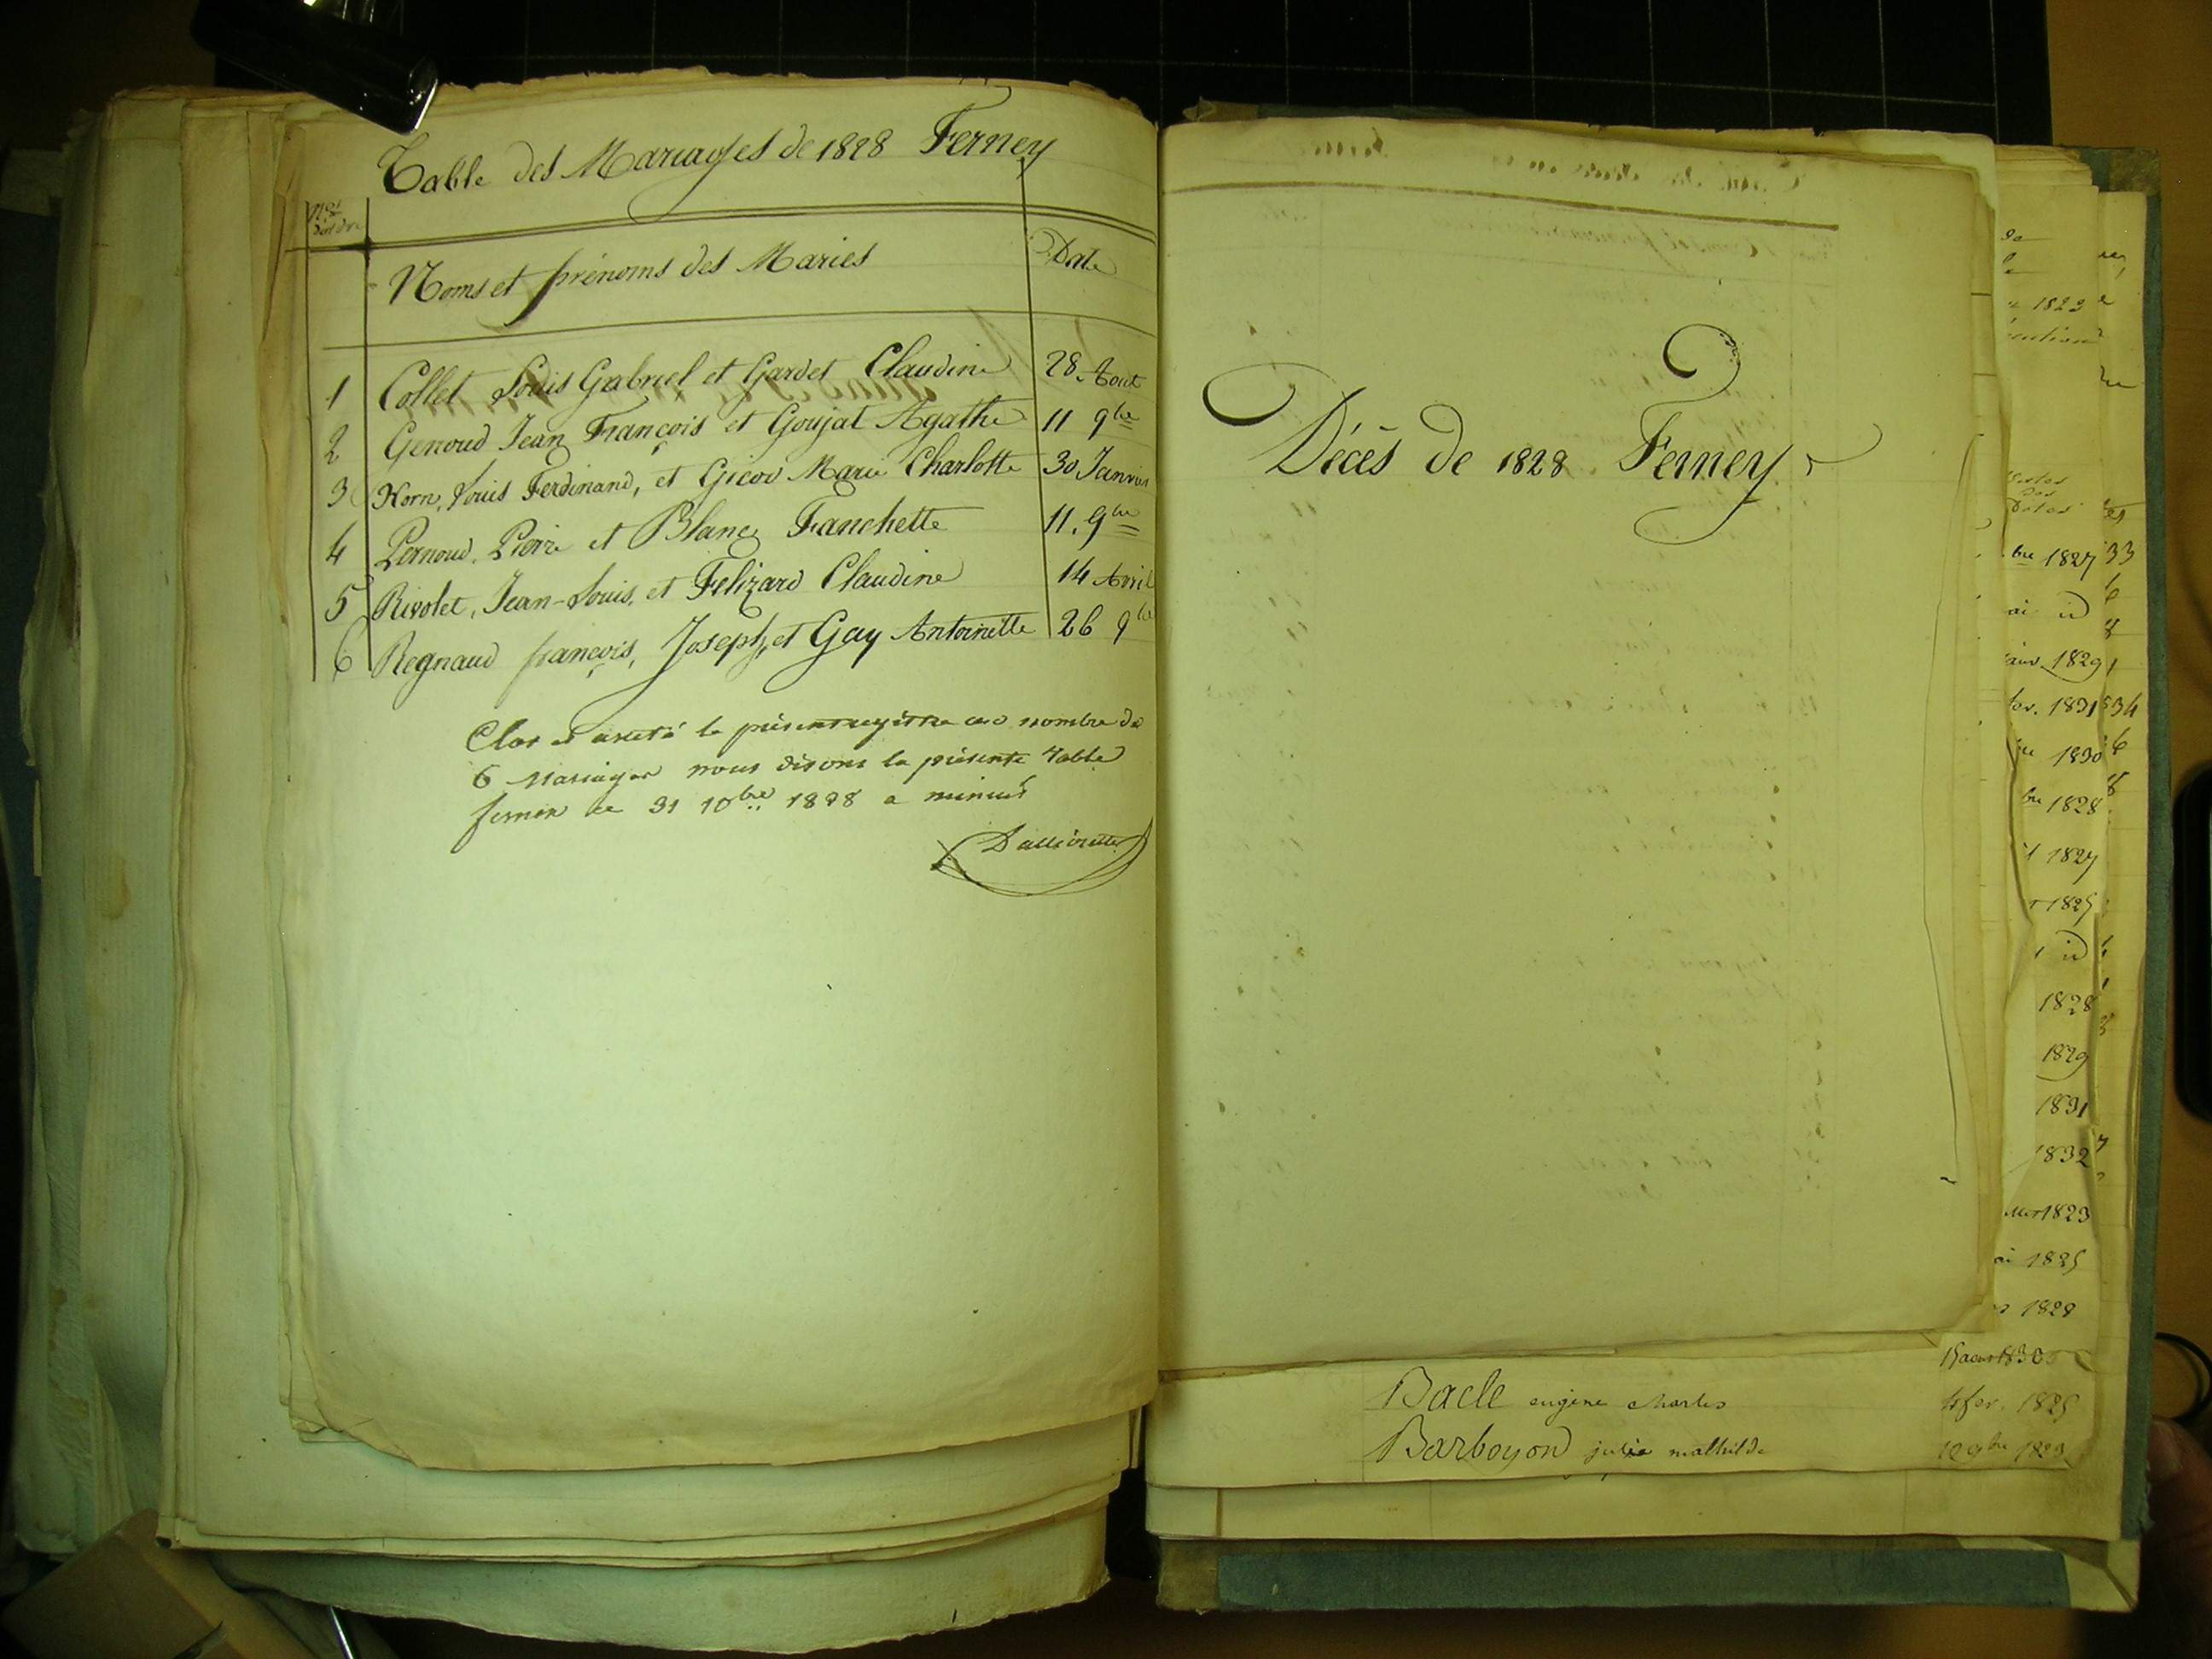 Table des Mariages de 1828 Ferney
Nos
d'ordre
Noms et prénoms des Mariés
Date
1 Collet Louis Gabriel et Gardet Claudine 28 Aout
2 Genoud Jean François et Goujat Agathe 11 9bre
3 Horn, Louis Ferdinand, et Gicod Marie Charlotte 30 Janvier
4 Pernoud, Pierre et Blanc Fanchette 11. 9bre
5 Rivolet, Jean-Louis, et Felizard Claudine 14 Avril
6 Regnaud françois, Joseph, et Gay Antoinette 26 9bre
Clos et areté le présent registre au nombre de
6 Mariages nous disons la présente Table
fernex ce 31 10bre 1828 a minuit
Décès de 1828 Ferney
1823
bre 1827 33
ai id
janv 1829 1
fev. 1831 34
1830 6
bre 1828
1827
1825
id
1828
1829
1831
1832
1823
ai 1825
1828
15 aout 1830
Bacle eugène charles fev. 1825
Barboyon julie mathilde 12 9bre 1823